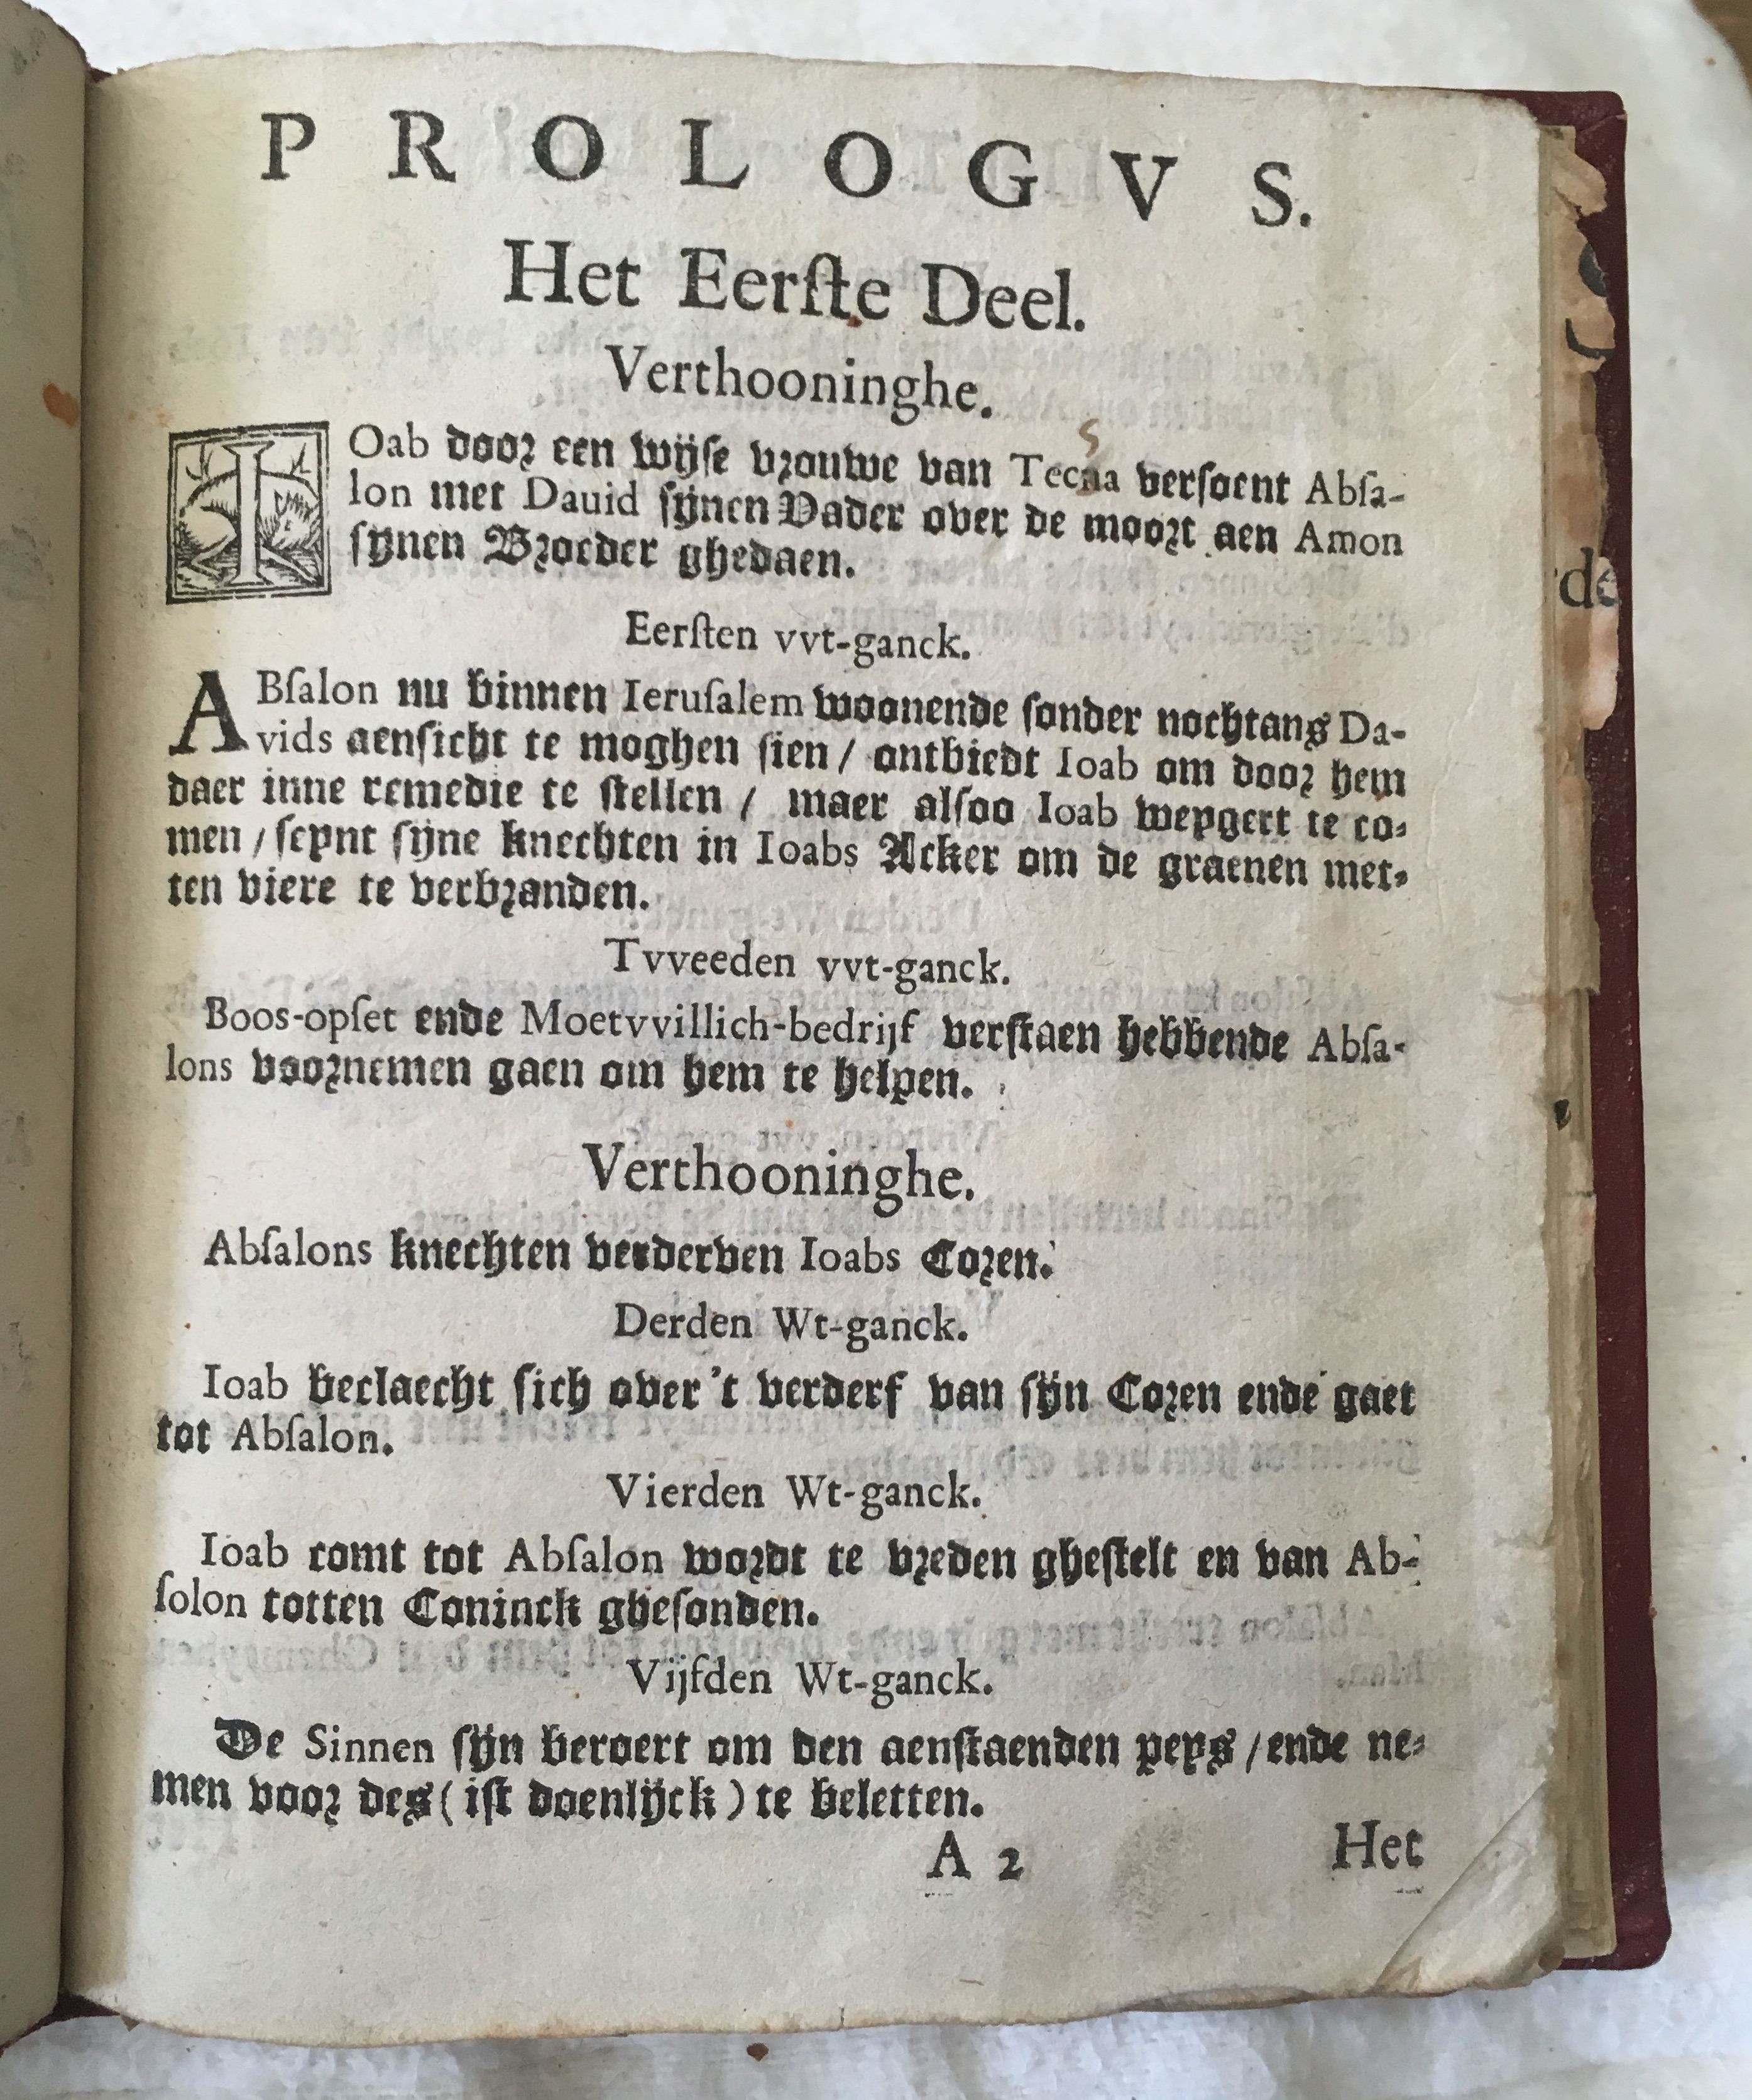 PROLOGVS.
Het Eerſte Deel.
Verthooninghe.
IOab door een wijſe vrouwe van Tecua verſoent Abſa-
lon met Dauid ſijnen Vader over de moort aen Amon
ſijnen Broeder ghedaen.
Eerſten vvt-ganck.
ABſalon nu binnen Ieruſalem woonende ſonder nochtans Da-
vids aenſicht te moghen ſien / ontbiedt Ioab om door hem
daer inne remedie te ſtellen / maer alſoo Ioab weygert te co-
men / ſeynt ſijne knechten in Ioabs Acker om de graenen met-
ten viere te verbranden.
Tvveeden vvt-ganck.
Boos-opſet ende Moetvvillich-bedrijf verſtaen hebbende Abſa-
lons voornemen gaen om hem te helpen.
Verthooninghe.
Abſalons knechten verderven Ioabs Coren.
Derden Wt-ganck.
Ioab beclaecht ſich over 't verderf van ſijn Coren ende gaet
tot Abſalon.
Vierden Wt-ganck.
Ioab comt tot Abſalon wordt te vreden gheſtelt en van Ab-
ſolon totten Coninck gheſonden.
Vijfden Wt-ganck.
De Sinnen ſijn beroert om den aenſtaenden peys / ende ne-
men voor des (iſt doenlijck) te beletten.
A 2 Het
de